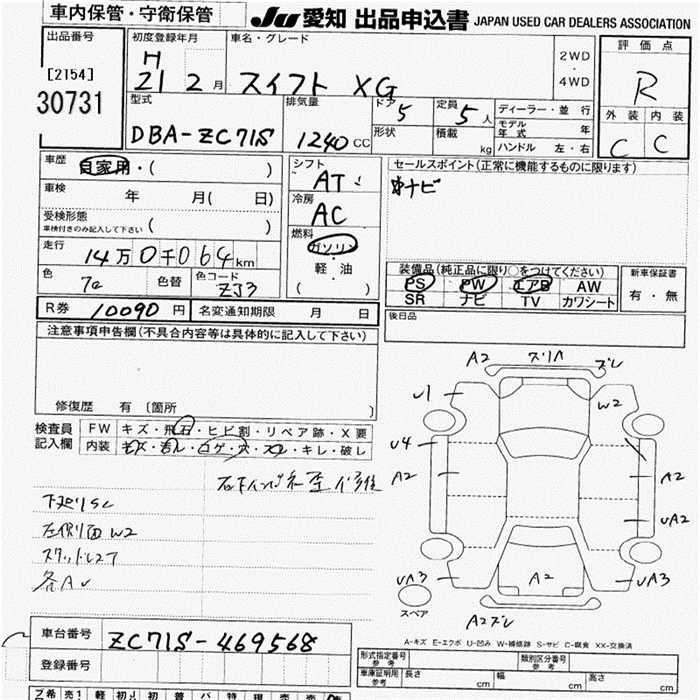 車内保管・守衛保管
JU 愛知 出品申込書 JAPAN USED CAR DEALERS ASSOCIATION
出品番号
[2154]
30731
初度登録年月
H
21 2 月
車名・グレード
スイフト XG
2WD
・
4WD
評価点
R
外装 内装
C C
型式
DBA-ZC71S
排気量
1240 CC
ドア
5
定員
5 人
形状
積載
kg
ディーラー・並行
モデル年式 年
ハンドル 左・右
車歴 自家用・( )
車検 年 月( 日)
受検形態
車検付きのみ記入して下さい ( )
走行 14万0千064km
色 色替 色コード
ZJ3
シフト
AT
冷房
AC
燃料
ガソリン
軽・油
( )
セールスポイント(正常に機能するものに限ります)
ナビ
装備品(純正品に限り○をつけてください)
PS PW エアB AW
SR ナビ TV カワシート
新車保証書
有・無
後日品
R券 10090 円 名変通知期限 月 日
注意事項申告欄(不具合内容等は具体的に記入して下さい)
修復歴 有 〔箇所 〕
検査員記入欄
FW キズ・飛石・ヒビ割・リペア跡・X要
内装 キズ・汚レ・コゲ・穴・スレ・キレ・破レ
左側面W2
スタッドレスタ
A2 スリハ ズレ
U1
W2
U4
A2
A2
UA2
UA3
A2
UA3
スペア
A2ズレ
A-キズ E-エクボ U-凹み W-補修跡 S-サビ C-腐食 XX-交換済
車台番号 ZC71S-469568
登録番号
形式指定番号 参考
類別区分番号 参考
車庫証明用 参考 長さ cm 幅 cm 高さ cm